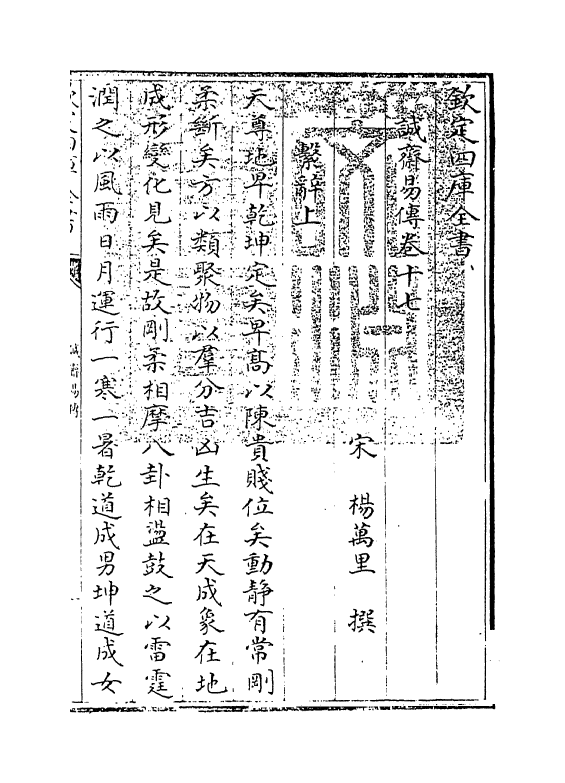 欽定四庫全書
誠齋易傳卷十七
宋　楊萬里　撰
繫辭上
天尊地卑乾坤定矣卑髙以陳貴賤位矣動靜有常剛
柔斷矣方以類聚物以羣分吉凶生矣在天成象在地
成形變化見矣是故剛柔相摩八卦相盪鼓之以雷霆
潤之以風雨日月運行一寒一暑乾道成男坤道成女